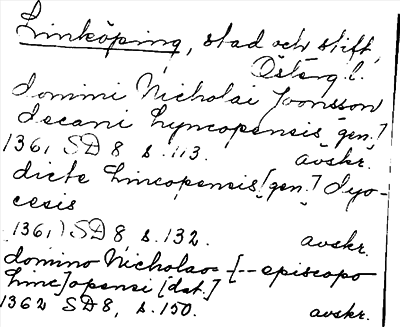 Linköping, stad och stift,
Österg l.
domini Nicholai Joonsson
decani Lyncopensis [gen.]
1361 SD 8 s. 113. avskr.
dicte Lincopensis [gen.] dyo-
cesis
1361) SD 8, s. 132. avskr.
domino Nicholao [-- episcopo
Linc]opensi [dat.]
1362 SD8, s. 150. avskr.